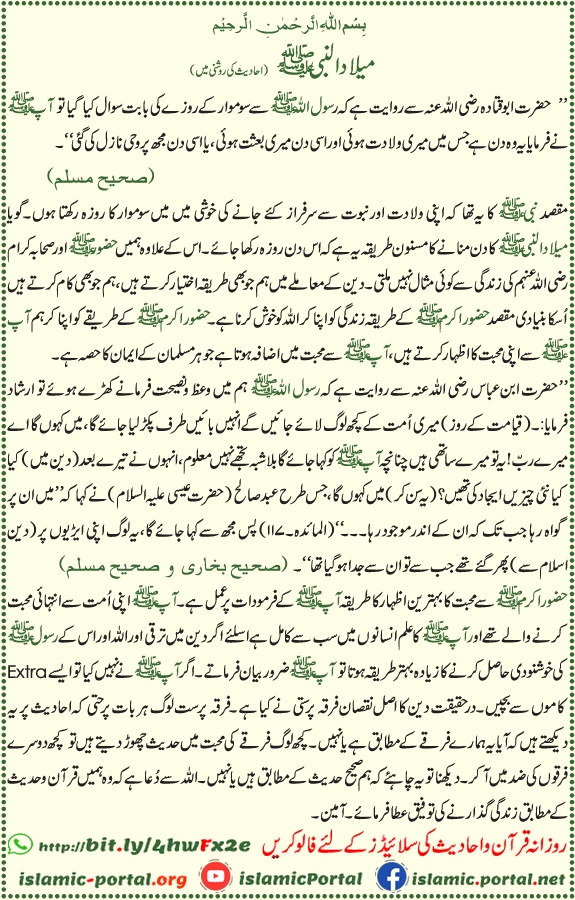 بِسْمِ اللهِ الرَّحْمٰنِ الرَّحِيْمِ
میلاد النبی ﷺ (احادیث کی روشنی میں)
’’ حضرت ابوقتادہ رضی اللہ عنہ سے روایت ہے کہ رسول اللہ ﷺ سے سوموار کے روزے کی بابت سوال کیا گیا تو آپ ﷺ
نے فرمایا یہ وہ دن ہے جس میں میری ولادت ہوئی اور اسی دن میری بعثت ہوئی، یا اسی دن مجھ پر وحی نازل کی گئی‘‘۔
(صحیح مسلم)
مقصد نبی ﷺ کا یہ تھا کہ اپنی ولادت اور نبوت سے سرفراز کئے جانے کی خوشی میں میں سوموار کا روزہ رکھتا ہوں۔ گویا
میلاد النبی ﷺ کا دن منانے کا مسنون طریقہ یہ ہے کہ اس دن روزہ رکھا جائے۔ اس کے علاوہ ہمیں حضور ﷺ اور صحابہ کرام
رضی اللہ عنہم کی زندگی سے کوئی مثال نہیں ملتی۔ دین کے معاملے میں ہم جو بھی طریقہ اختیار کرتے ہیں، ہم جو بھی کام کرتے ہیں
اُسکا بنیادی مقصد حضور اکرم ﷺ کے طریقہ زندگی کو اپنا کر اللہ کو خوش کرنا ہے۔ حضور اکرم ﷺ کے طریقے کو اپنا کر ہم آپ
ﷺ سے اپنی محبت کا اظہار کرتے ہیں، آپ ﷺ سے محبت میں اضافہ ہوتا ہے جو ہر مسلمان کے ایمان کا حصہ ہے۔
’’حضرت ابن عباس رضی اللہ عنہ سے روایت ہے کہ رسول اللہ ﷺ ہم میں وعظ و نصیحت فرمانے کھڑے ہوئے تو ارشاد
فرمایا:۔ (قیامت کے روز) میری اُمت کے کچھ لوگ لائے جائیں گے انہیں بائیں طرف پکڑ لیا جائے گا، میں کہوں گا اے
میرے ربّ! یہ تو میرے ساتھی ہیں چنانچہ آپ ﷺ کو کہا جائے گا بلاشبہ تجھے نہیں معلوم، انہوں نے تیرے بعد (دین میں) کیا
کیا نئی چیزیں ایجاد کی تھیں؟ (یہ سن کر) میں کہوں گا، جس طرح عبد صالح (حضرت عیسیٰ علیہ السلام) نے کہا کہ ’’میں ان پر
گواہ رہا جب تک کہ ان کے اندر موجود رہا۔۔۔‘‘ (المائدہ۔۱۱۷) پس مجھ سے کہا جائے گا، یہ لوگ اپنی ایڑیوں پر (دین
اسلام سے) پھر گئے تھے جب سے تو ان سے جدا ہو گیا تھا‘‘۔ (صحیح بخاری و صحیح مسلم)
حضور اکرم ﷺ سے محبت کا بہترین اظہار کا طریقہ آپ ﷺ کے فرمودات پر عمل ہے۔ آپ ﷺ اپنی اُمت سے انتہائی محبت
کرنے والے تھے اور آپ ﷺ کا علم انسانوں میں سب سے کامل ہے اسلئے اگر دین میں ترقی اور اللہ اور اس کے رسول ﷺ
کی خوشنودی حاصل کرنے کا زیادہ بہتر طریقہ ہوتا تو آپ ﷺ ضرور بیان فرماتے۔ اگر آپ ﷺ نے نہیں کیا تو ایسے Extra
کاموں سے بچیں۔ در حقیقت دین کا اصل نقصان فرقہ پرستی نے کیا ہے۔ فرقہ پرست لوگ ہر بات پر حتی کہ احادیث پر یہ
دیکھتے ہیں کہ آیا یہ ہمارے فرقے کے مطابق ہے یا نہیں۔ کچھ لوگ فرقے کی محبت میں حدیث چھوڑ دیتے ہیں تو کچھ دوسرے
فرقوں کی ضد میں آ کر۔ دیکھنا تو یہ چاہئے کہ ہم صحیح حدیث کے مطابق ہیں یا نہیں۔ اللہ سے دُعا ہے کہ وہ ہمیں قرآن و حدیث
کے مطابق زندگی گذارنے کی توفیق عطا فرمائے۔ آمین۔
روزانہ قرآن و احادیث کی سلائیڈز کے لئے فالو کریں http://bit.ly/4hwFx2e
islamic-portal.org islamicPortal islamic.portal.net